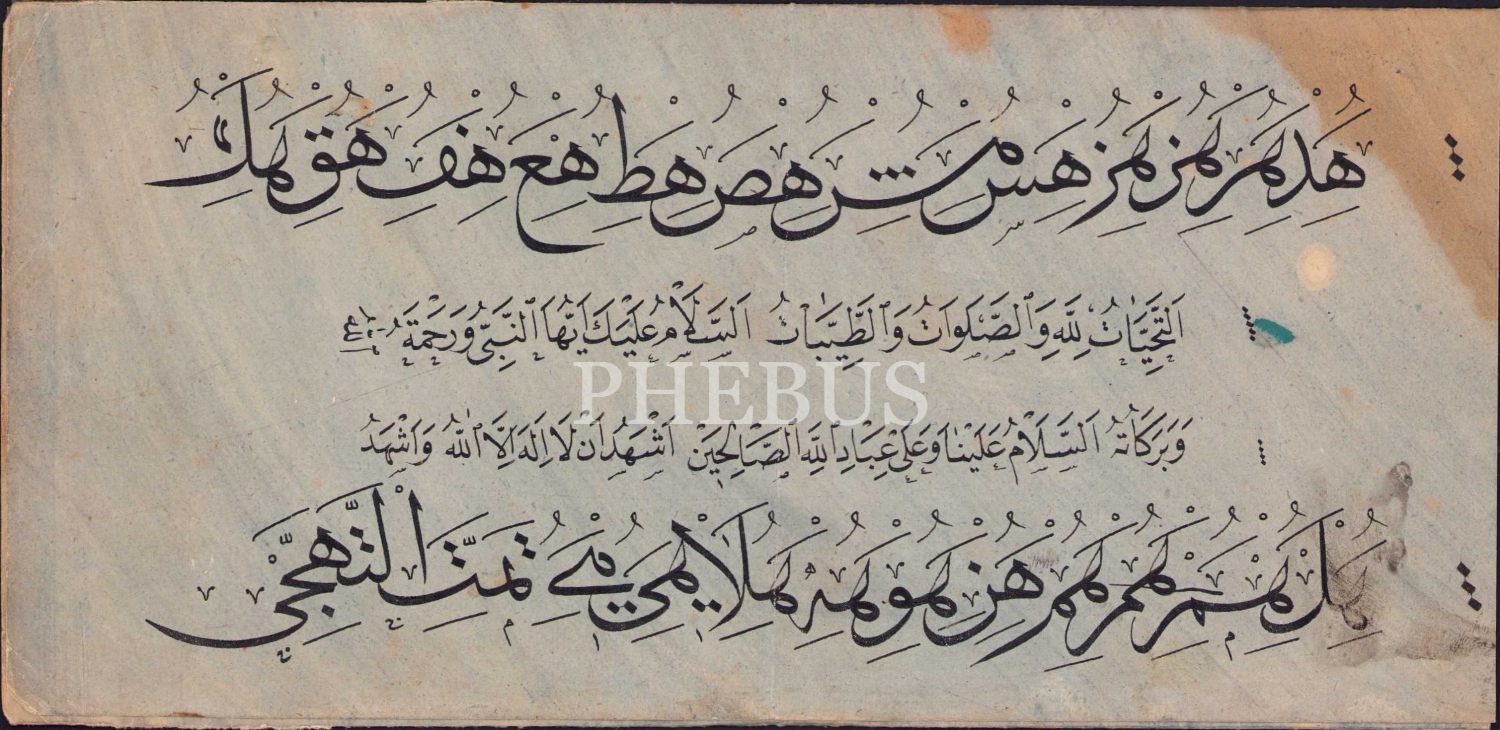 هُدِ هُرِ هُزِ هِسُ هُشِ هِصُ هِطُ هِعُ هِفُ هِقُ هُكِ
اَلتَّحِيَّاتُ لِلّٰهِ وَالصَّلَوَاتُ وَالطَّيِّبَاتُ اَلسَّلَامُ عَلَيْكَ اَيُّهَا النَّبِىُّ وَرَحْمَةُ
PHEBUS
وَبَرَكَاتُهُ اَلسَّلَامُ عَلَيْنَا وَعَلٰى عِبَادِ اللّٰهِ الصَّالِحِينَ اَشْهَدُ اَنْ لَا اِلٰهَ اِلَّا اللّٰهُ وَاَشْهَدُ
هُلِ هُمِ هُمِ هُمِ هُنِ هُوِ هُهِ هُلَا هُىِ هُىِ تَمَّتَ التَّهَجِّى